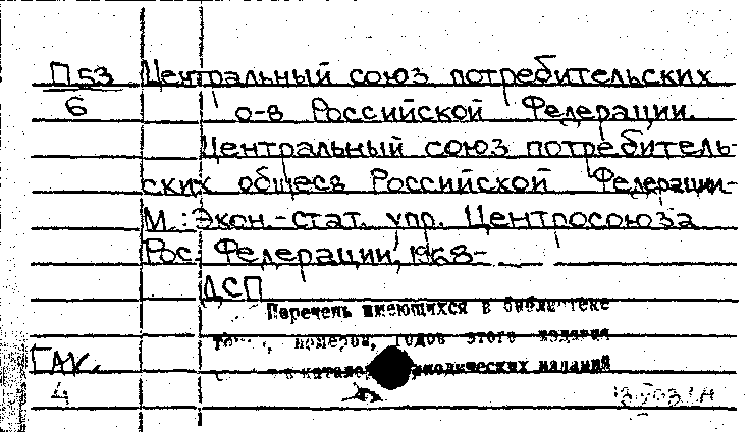 П53 Центральный союз потребительских
6 о-в Российской Федерации.
Центральный союз потребитель-
ских общесв Российской Федерации-
М.: Экон.-стат. упр. Центросоюза
Рос. Федерации, 1968-
ДСП
Перечень имеющихся в библиотеке
номеров, годов этого издания
изданий
ГАК.
4